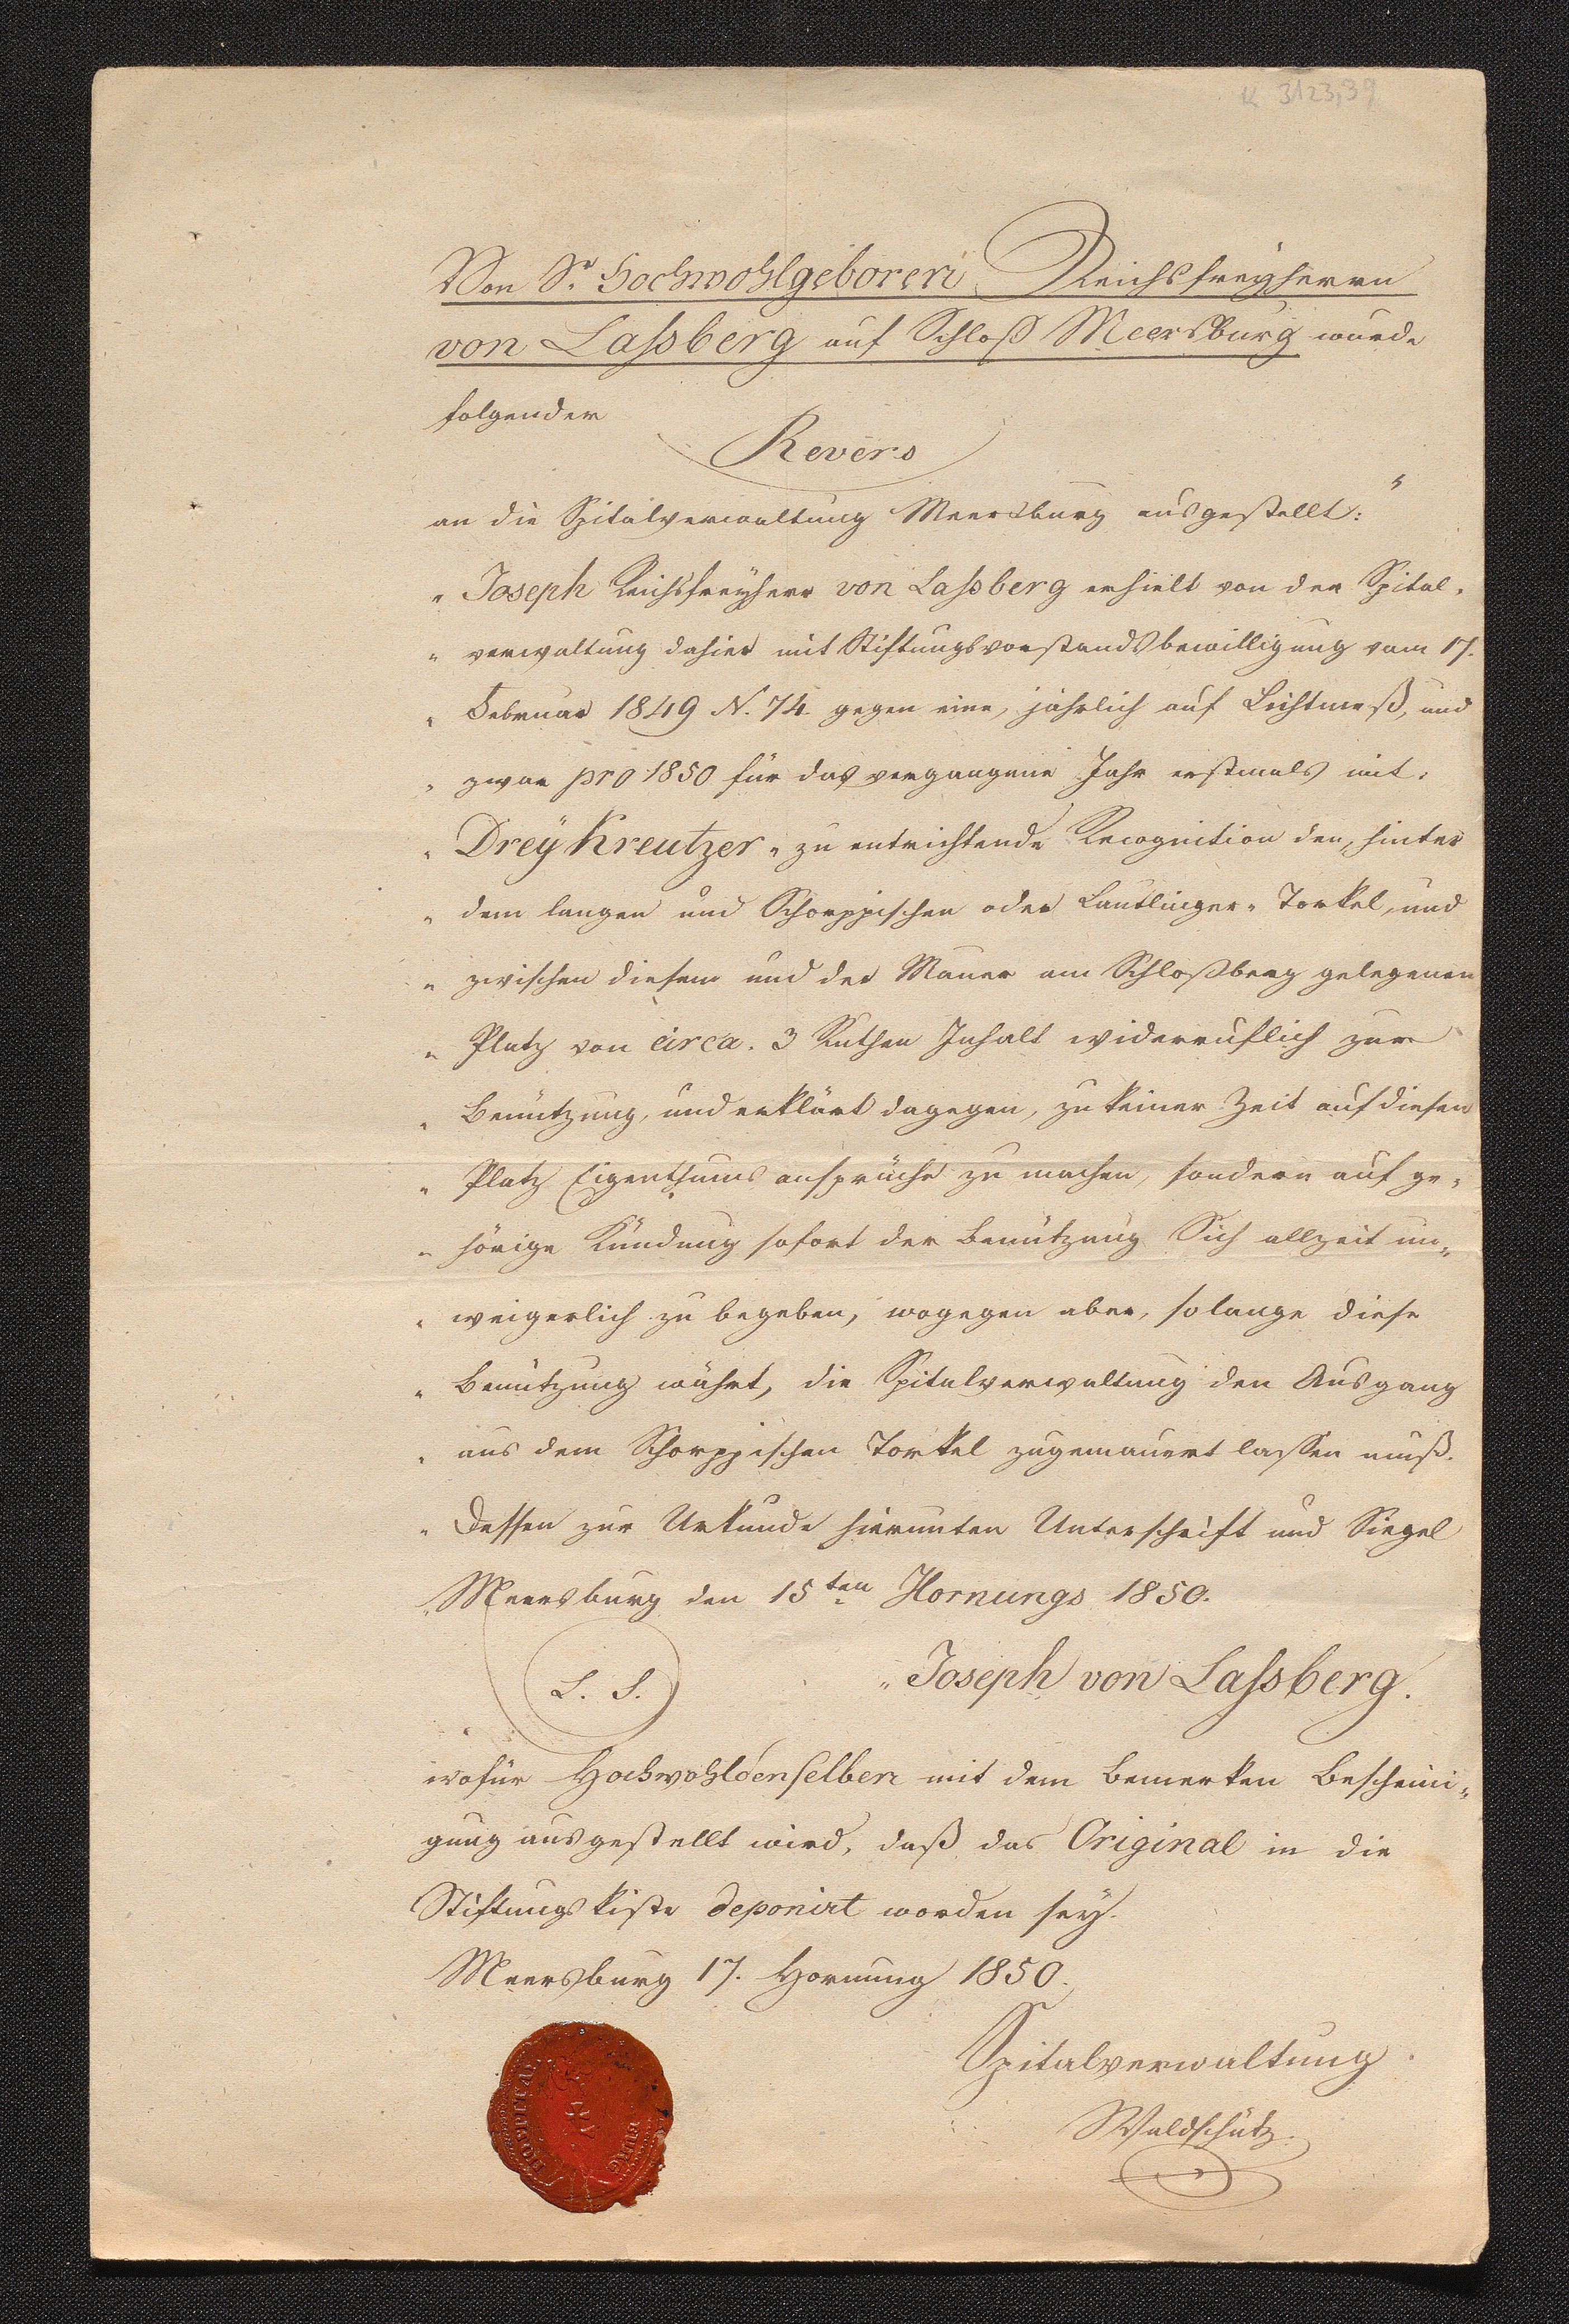 K 3123,39
Von Sr. Hochwohlgeboren Reichsfreyherrn
von Laßberg auf Schloß Meersburg wurde
folgender
Revers
an die Spitalverwaltung Meersburg ausgestellt: "
„ Joseph Reichsfreyherr von Laßberg erhielt von der Spital-
„ verwaltung dahier mit Stiftungsvorstandsbewilligung vom 17.
„ Februar 1849 N. 74. gegen eine, jährlich auf Lichtmeß, und
„ zwar pro 1850 für das vergangene Jahr erstmals mit:
„ Drey Kreutzer „ zu entrichtende Recognition den, hinter
„ dem langen und Schorppischen oder Lautlinger- Torkel, und
„ zwischen diesem und der Mauer am Schloßberg gelegenen
„ Platz von circa. 3 Ruthen Inhalt widerruflich zur
„ Benützung, und erklärt dagegen, zu keiner Zeit auf diesen
„ Platz Eigenthums ansprüche zu machen, sondern auf ge-
„ hörige Kündung sofort der Benützung Sich allzeit un-
„ weigerlich zu begeben, wogegen aber, solange diese
„ Benützung währt, die Spitalverwaltung den Ausgang
„ aus dem Schorppischen Torkel zugemauert lassen muß.
„ Dessen zur Urkunde hierunten Unterschrift und Siegel
„ Meersburg den 15ten Hornungs 1850.
L. S. „ Joseph von Laßberg.
wofür Hochwohldenselben mit dem Bemerken Bescheini-
gung ausgestellt wird, daß das Original in die
Stiftungskiste deponirt worden sey.
Meersburg 17. Hornung 1850.
Spitalverwaltung.
Waldschütz.